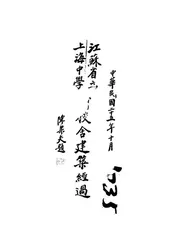 中華民國二十五年十月
江蘇省立
上海中學
校舍建築經過
陳果夫題
1935